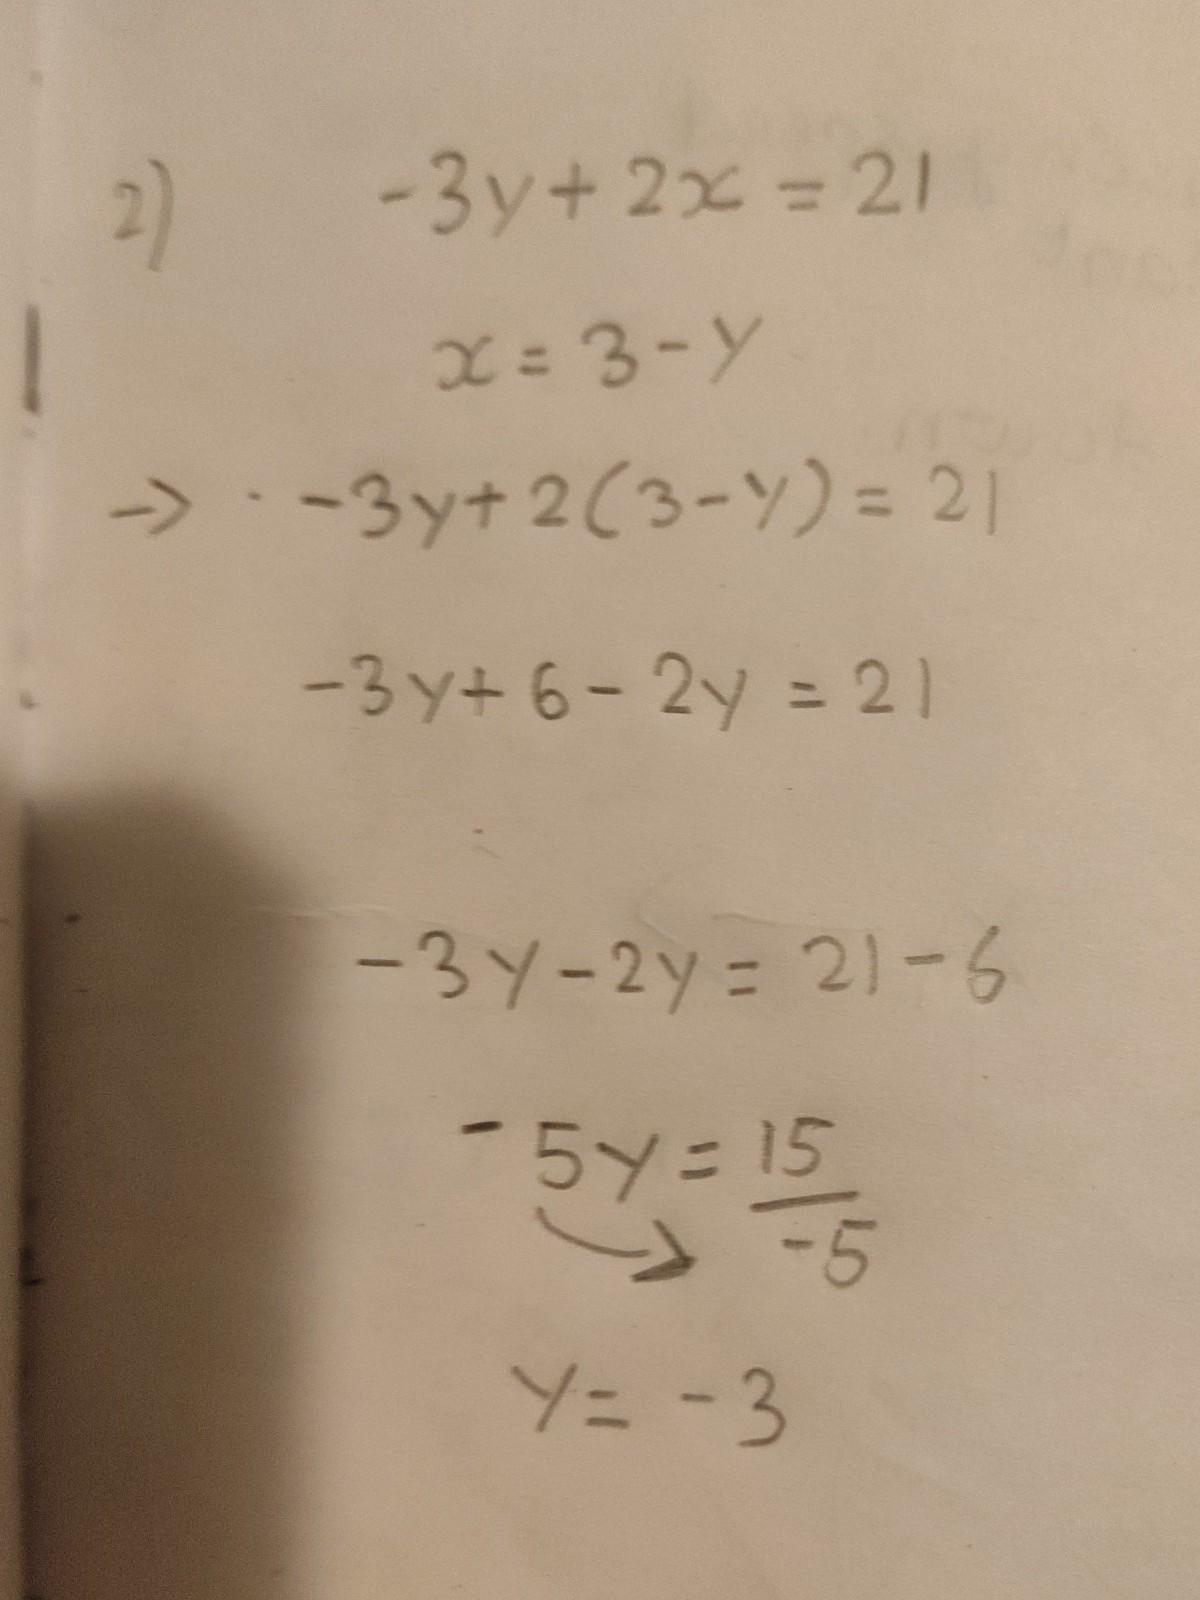 2) -3y + 2x = 21
x = 3 - y
→ -3y + 2(3 - y) = 21
-3y + 6 - 2y = 21
-3y - 2y = 21 - 6
-5y = 15
-5
y = -3